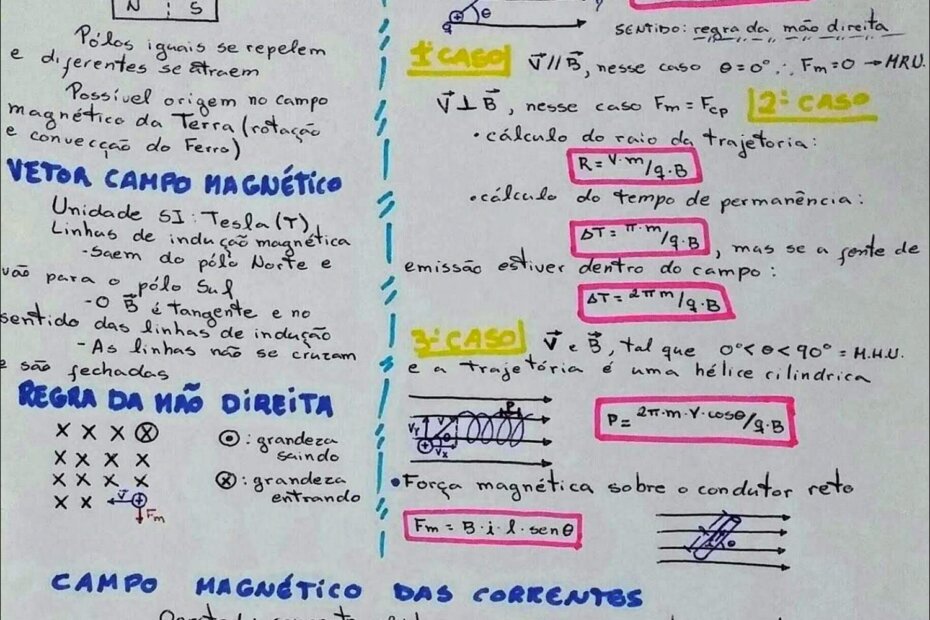 N S
Pólos iguais se repelem
e diferentes se atraem
Possível origem no campo
magnético da Terra (rotação
e convecção do Ferro)
VETOR CAMPO MAGNÉTICO
Unidade SI: Tesla (T)
Linhas de indução magnética
-Saem do pólo Norte e
vão para o pólo Sul
-O B⃗ é tangente e no
sentido das linhas de indução
-As linhas não se cruzam
e são fechadas
REGRA DA MÃO DIREITA
X X X ⊗
X X X X
X X X X
X X V⃗ ⊕
Fm
⊙: grandeza
saindo
⊗: grandeza
entrando
q θ
SENTIDO: regra da mão direita
1º CASO V⃗ // B⃗, nesse caso θ=0° ∴ Fm=0 → MRU.
V⃗ ⊥ B⃗, nesse caso Fm = Fcp 2º CASO
• cálculo do raio da trajetoria:
R = V·m/q·B
• cálculo do tempo de permanência:
ΔT = π·m/q·B, mas se a fonte de
emissão estiver dentro do campo:
ΔT = 2πm/q·B
3º CASO V⃗ e B⃗, tal que 0°<θ<90° = M.H.U.
e a trajetória é uma hélice cilindrica
P
Vy V θ Vx
P = 2π·m·V·cosθ/q·B
• Força magnética sobre o condutor reto
Fm = B·i·l·senθ
θ
CAMPO MAGNÉTICO DAS CORRENTES